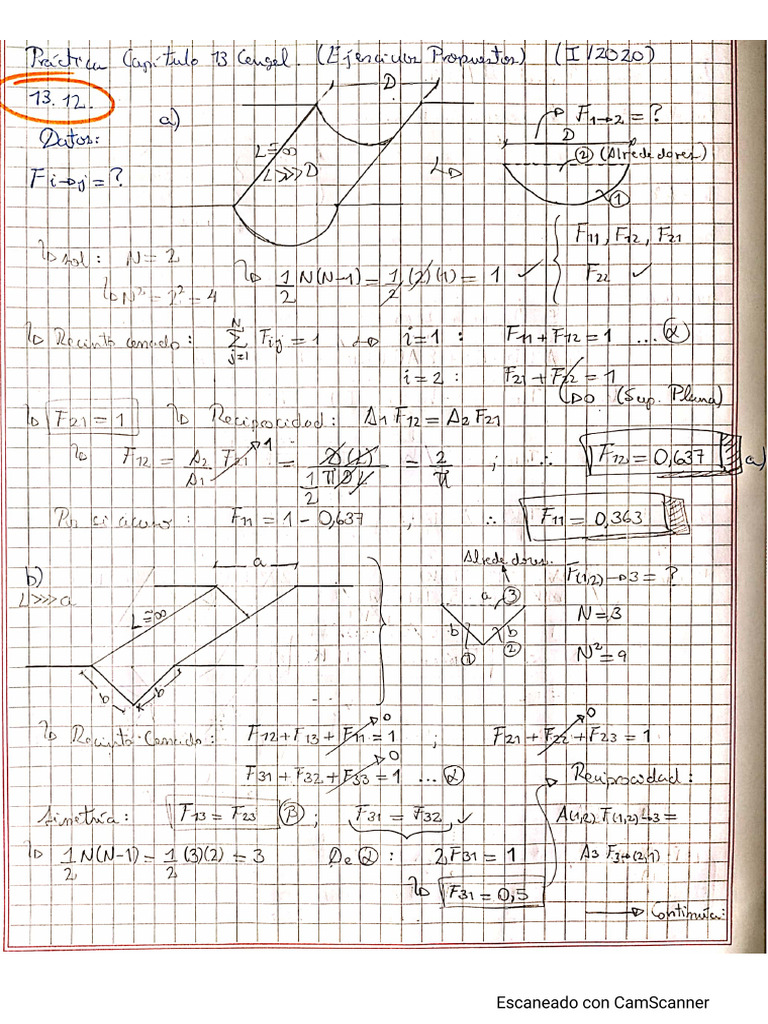 Práctica Capítulo 13 Cengel. (Ejercicios Propuestos) (I/2020)
13.12.
Datos:
Fi→j = ?
a)
D
L≅∞
L>>>D
F1→2 = ?
D
② (Alrededores)
①
sol: N = 2
N² = 2² = 4
1/2 N(N-1) = 1/2 (2)(1) = 1 ✓
F11, F12, F21
F22 ✓
Recinto cerrado: N Σ j=1 Fij = 1 i=1 : F11 + F12 = 1 ... α
i=2 : F21 + F22 = 1
0 (Sup. Plana)
F21 = 1 Reciprocidad: A1 F12 = A2 F21
F12 = A2/A1 F21 1 = D(L) / 1/2 π D L = 2/π ; ∴ F12 = 0,637 a)
F11 = 1 - 0,637 ; ∴ F11 = 0,363
b)
L>>>a
a
L≅∞
b b
Alrededores.
a ③
b b
① ②
F(1,2)→3 = ?
N = 3
N² = 9
Recinto Cerrado: F12 + F13 + F11 = 1 0 ; F21 + F22 + F23 = 1 0
F31 + F32 + F33 = 1 0 ... α
Simetría: F13 = F23 β ; F31 = F32 ✓
Reciprocidad:
A(1,2) F(1,2)→3 =
A3 F3→(2,1)
1/2 N(N-1) = 1/2 (3)(2) = 3 De α : 2F31 = 1
F31 = 0,5
→ Continúa:
Escaneado con CamScanner